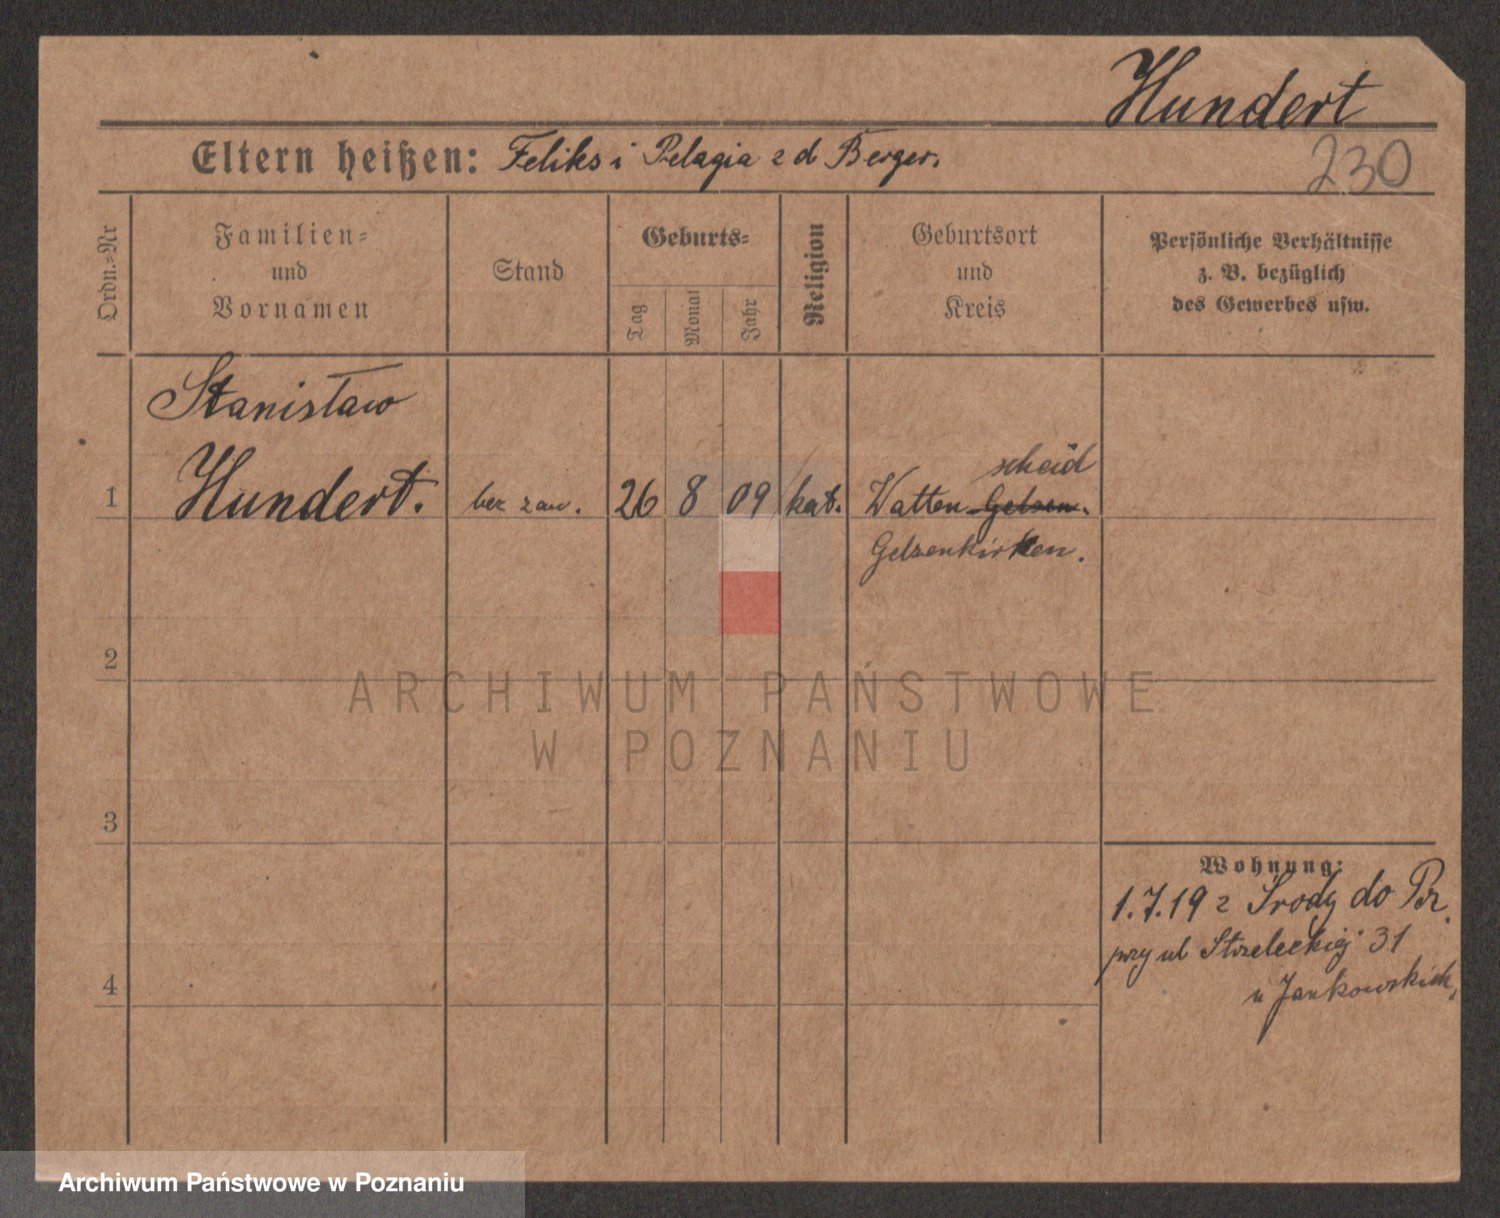 Hundert
230
Eltern heißen: Feliks i Pelagia z d Berger.
Ordn.-Nr
Familien-
und
Vornamen
Stand
Geburts-
Tag
Monat
Jahr
Religion
Geburtsort
und
Kreis
Persönliche Verhältnisse
z. B. bezüglich
des Gewerbes usw.
Stanisław
1 Hundert. bez zaw. 26 8 09 kat. Watten Gelsen.
scheid
Gelsenkirken.
2
3
4
Wohnung:
1.7.19 z Środy do Pz.
przy ul Strzeleckiej 31
u Jankowskich,
ARCHIWUM PAŃSTWOWE
W POZNANIU
Archiwum Państwowe w Poznaniu